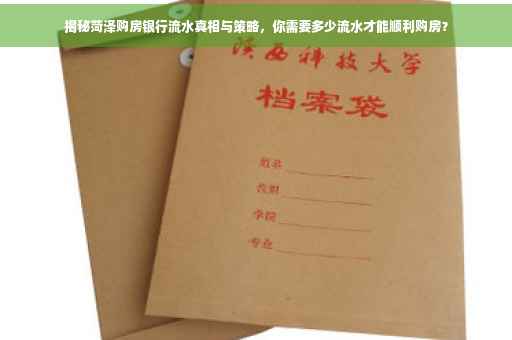 揭秘菏泽购房银行流水真相与策略，你需要多少流水才能顺利购房？
陕西科技大学
档案袋
姓名
学院
专业